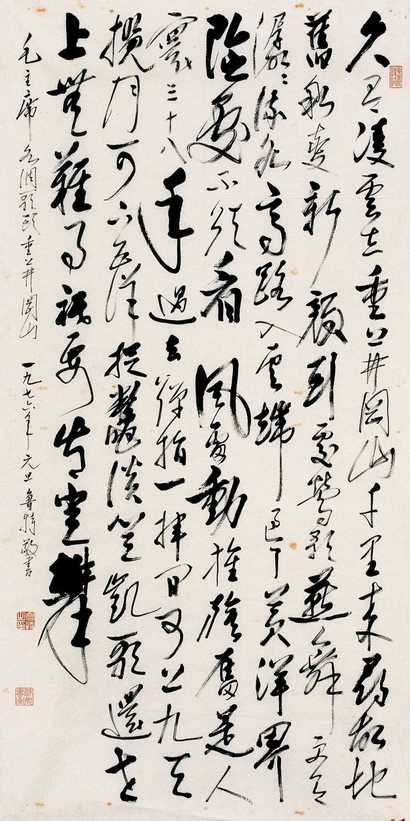 久有凌雲志重上井岡山千里来尋故地
舊貌變新顔到處鶯歌燕舞更有
潺潺流水高路入雲端過了黄洋界
險處不須看風雷動旌旗奮是人
寰三十八年過去彈指一揮間可上九天
攬月可下五洋捉鱉談笑凱歌還世
上無難事祇要肯登攀
毛主席水調歌頭重上井岡山 一九七六年元旦 敬書